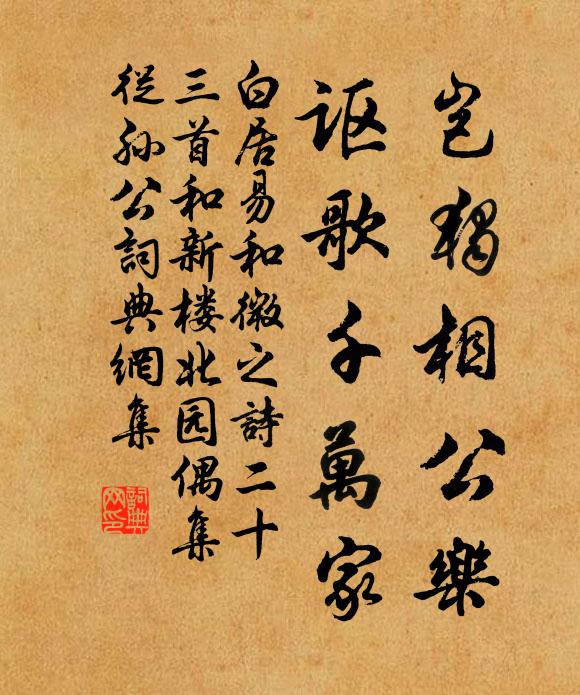 豈獨相公樂
謳歌千萬家
白居易和微之詩二十
三首和新楼北园偶集
從孙公詞典網集
詞典网印